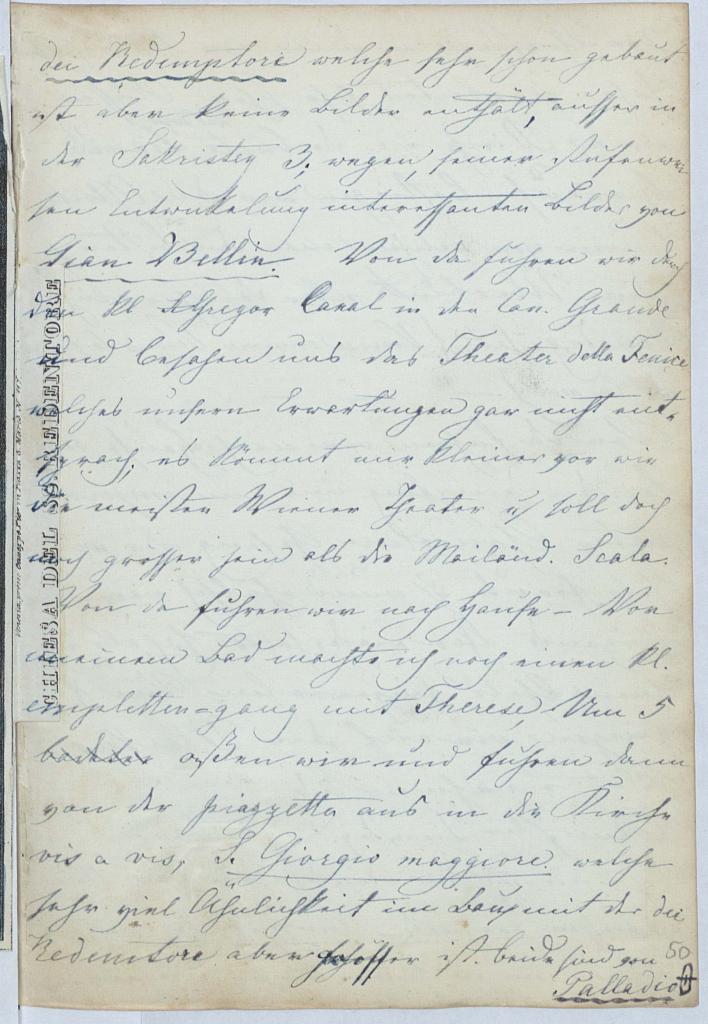 dei Redemptore welche sehr schön gebaut
ist aber keine Bilder enthält, ausser in
der Sakristey 3, wegen seiner stufenwei
sen Entwickelung interessanten Bilder von
Gian Bellin. Von da fuhren wir durch
den kl St Gregor Canal in den Can. Grande
und besahen uns das Theater della Fenice
welches unsern Erwartungen gar nicht ent-
sprach, es kömmt mir kleiner vor wie
die meisten Wiener Theater u soll doch
noch grösser sein als die Mailänd. Scala.
Von da fuhren wir nach Hause – Vor
meinem Bad machte ich noch einen kl.
gang mit Therese, Um 5
badete aßen wir und fuhren dann
von der piazzetta aus in die Kirche
vis a vis, S. Giorgio maggiore. welche
sehr viel Ähnlichkeit im Bau mit der dei
Redemtore aber ist. beide sind von
Palladio
50
CHIESA DEL SS. REDENTORE